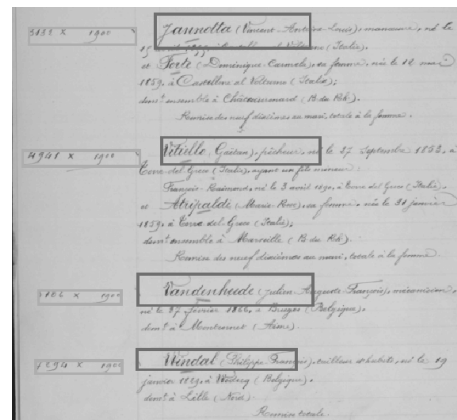 3152 X 1900 Jannotta (Vincent-Antoine-Louis), manœuvre, né le
15 à Castellone al Volturno (Italie),
et Forte (Dominique-Carmela), sa femme, née le 12 mai
1859, à Castellone al Volturno (Italie);
demt ensemble à Châteaurenard (B. du Rh.).
Remise des neuf dixièmes au mari, totale à la femme.
4948 X 1900 Vitiello (Gaëtan), pêcheur, né le 27 septembre 1852, à
Torre del Greco (Italie), ayant un fils mineur:
François-Raimond, né le 3 août 1890, à Torre del Greco (Italie),
et (Marie-Rose), sa femme, née le 31 janvier
1859, à Torre del Greco (Italie);
demt ensemble à Marseille (B. du Rh.).
Remise des neuf dixièmes au mari, totale à la femme.
X 1900 Vandenheide (Julien-Auguste-François), mécanicien,
né le 27 février 1866, à Bruges (Belgique),
demt à (Aisne).
7294 X 1900 Windal (Philippe-François), tailleur d'habits, né le 19
janvier à (Belgique),
demt à Lille (Nord)
Remise totale.